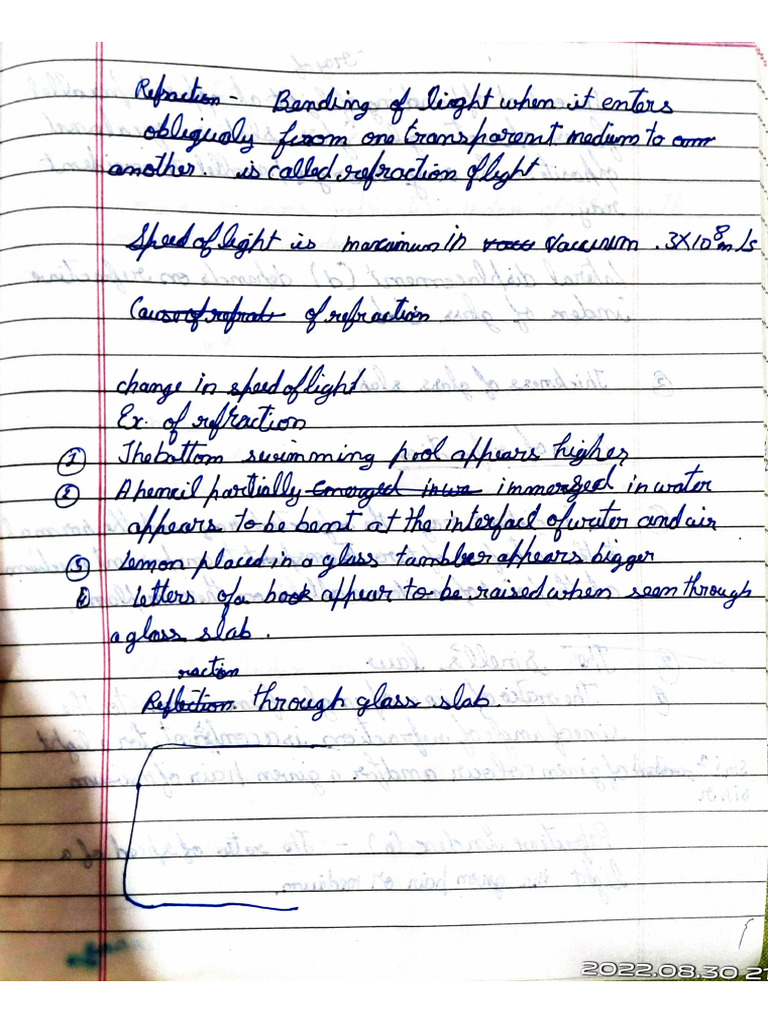 Refraction - Bending of light when it enters
obliqualy from one transparent medium to
another. is called refraction of light
Speed of light is maximum in vacuum. 3X10⁸m/s
Cause of refrat of refraction
change in speed of light
Ex. of refraction
1 The bottom swimming pool appears higher
2 A pencil partially emerged in wa immerged in water
appears to be bent at the interfacl of water and air
3 Lemon placed in a glass tambler appears bigger
4 Letters of a book appear to be raised when seen through
a glass slab.
raction
Reflection through glass slab.
2022.08.30 21